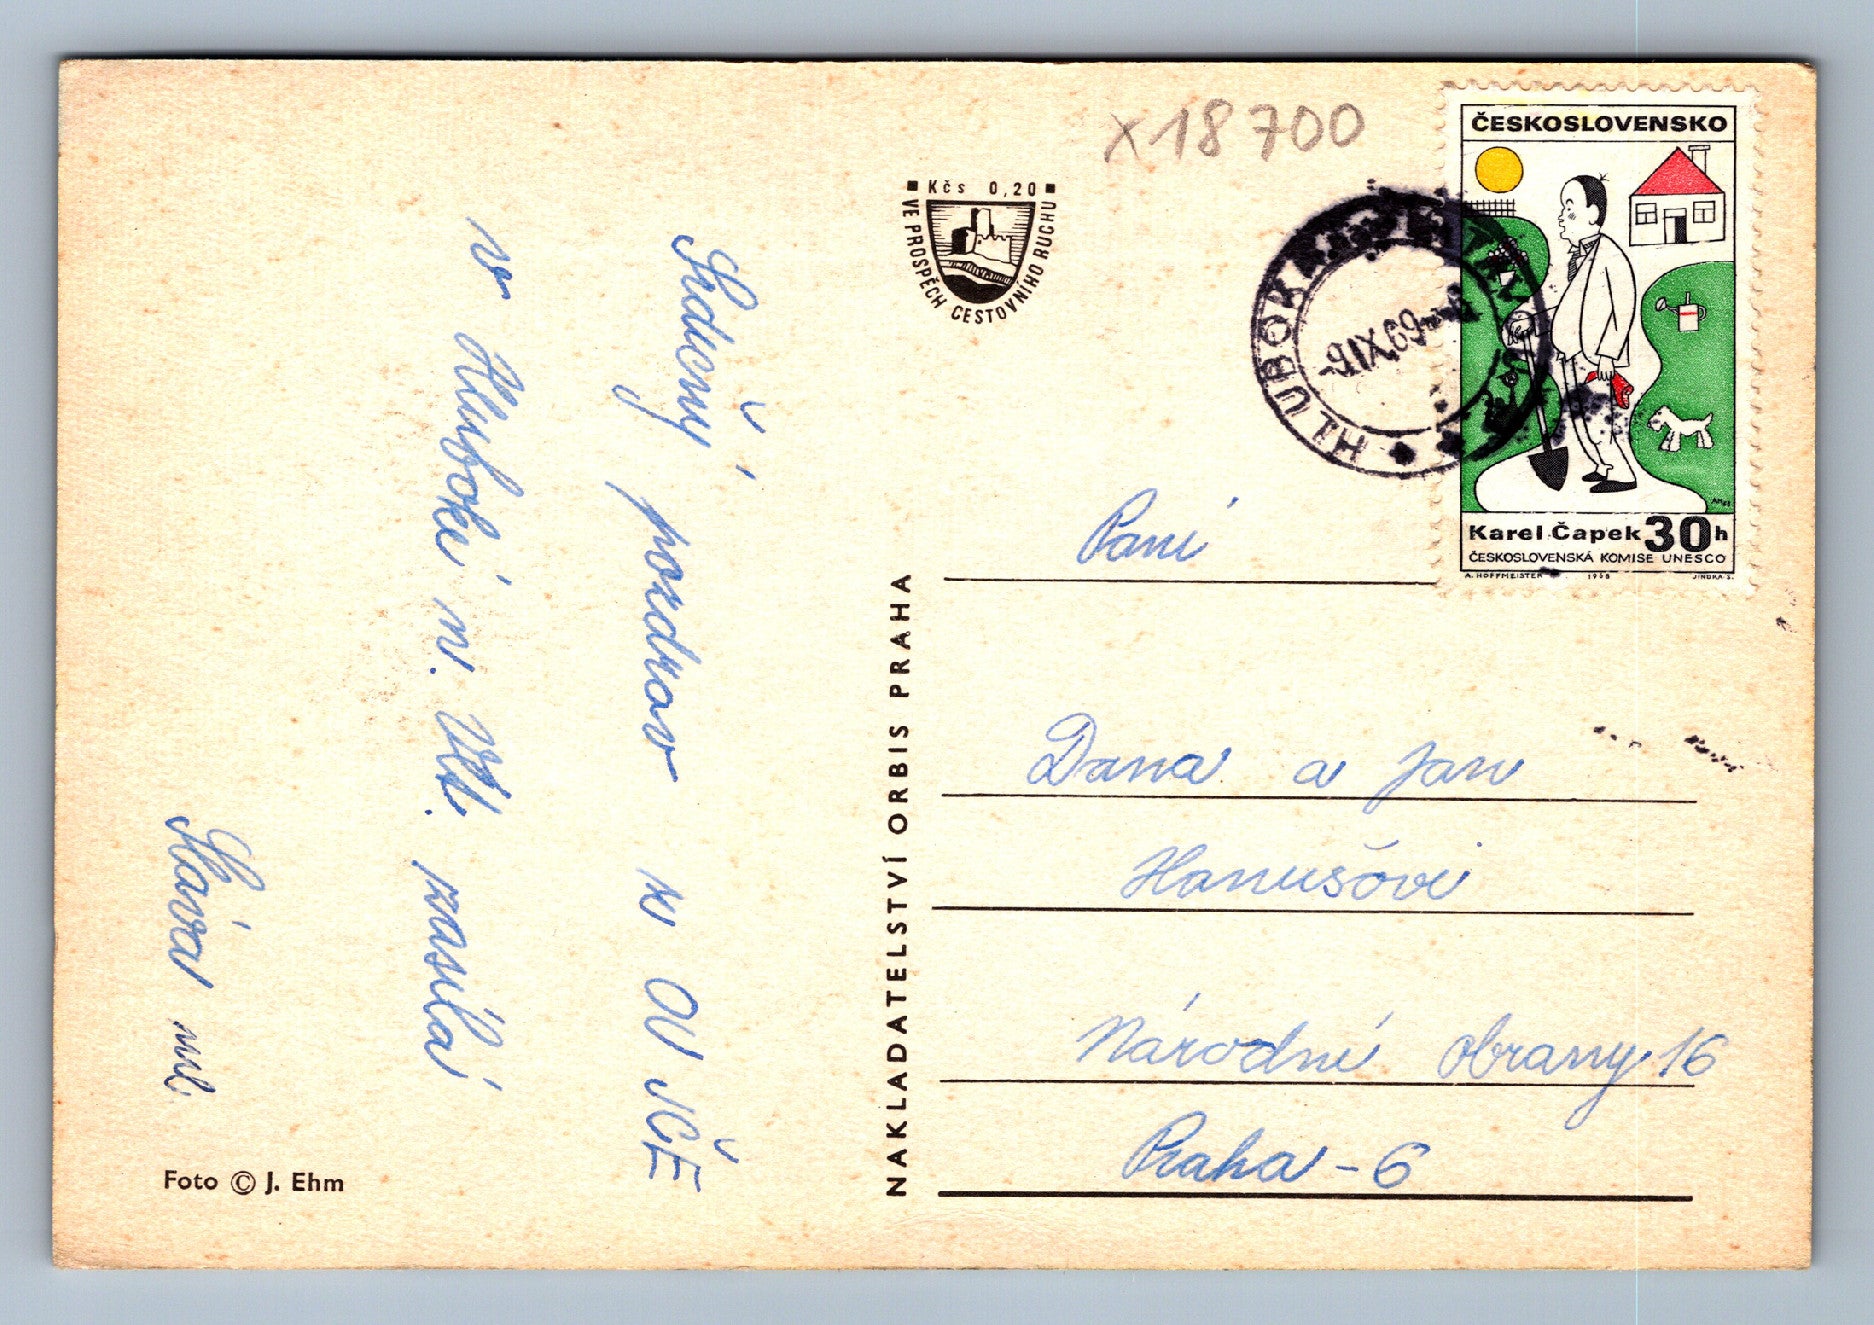 Srdečný pozdrav z OV SČE
v Hluboké n. Vlt. zasílá
Sláva ml.
Foto © J. Ehm
NAKLADATELSTVÍ ORBIS PRAHA
Kčs 0,20
VE PROSPĚCH CESTOVNÍHO RUCHU
x18700
HLUBOKÁ
-9.IX.69
ČESKOSLOVENSKO
Karel Čapek 30h
ČESKOSLOVENSKÁ KOMISE UNESCO
A. HOFFMEISTER 1968 JINDRA S.
Paní
Dana a Jan
Hanušovi
Národní obrany 16
Praha - 6